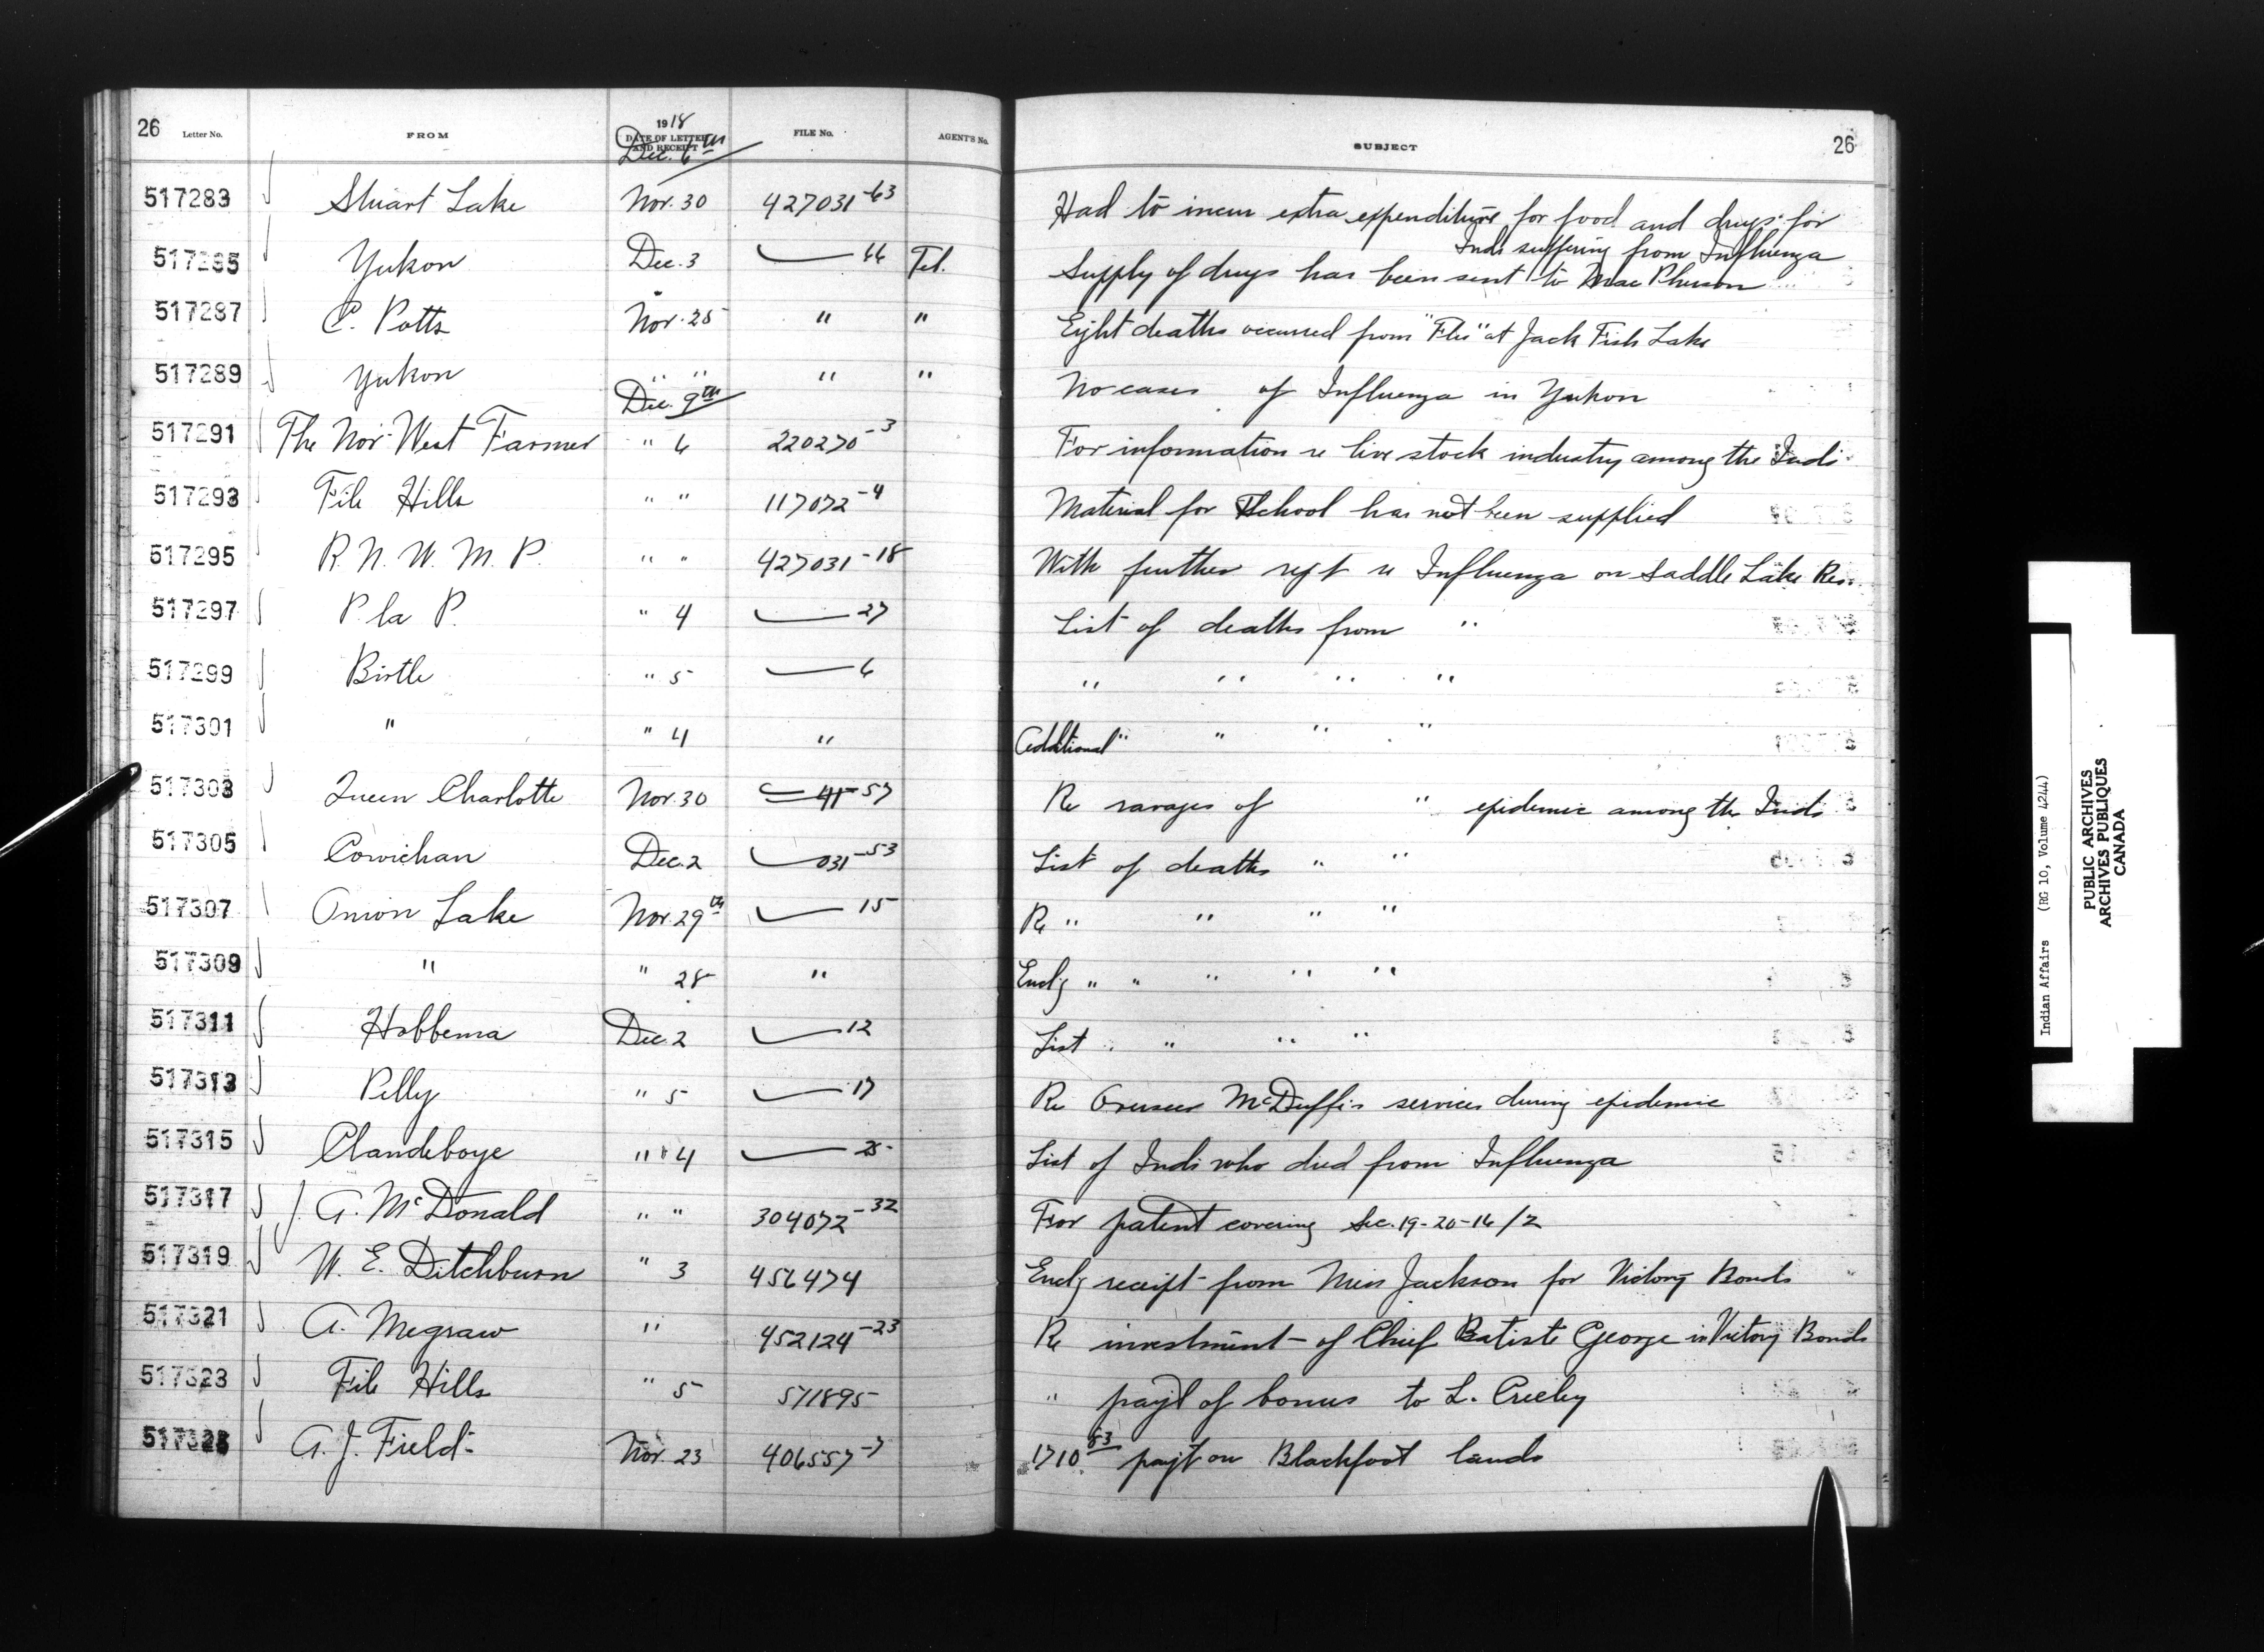 26 Letter No. FROM 1918 DATE OF LETTER AND RECEIPT FILE No. AGENT'S No. SUBJECT 26
Dec. 6th
517283 Stuart Lake Nov. 30 427031-63 Had to incur extra expenditure for food and drugs for
Inds suffering from Influenza
517285 Yukon Dec. 3 66 Tel. Supply of drugs has been sent to MacPherson
517287 C. Potts Nov. 25 " " Eight deaths occurred from "Flu" at Jack Fish Lake
517289 Yukon " " " " No cases of Influenza in Yukon
Dec. 9th
517291 The Nor-West Farmer " 6 220270-3 For information re live stock industry among the Inds
517293 File Hills " " 117072-4 Material for School has not been supplied
517295 R. N. W. M. P. " " 427031-18 With further rept re Influenza on Saddle Lake Res.
517297 P. la P. " 4 27 List of deaths from "
517299 Birtle " 5 6 " " " "
517301 " " 4 " Additional " " " "
517303 Queen Charlotte Nov. 30 57 Re ravages of " epidemic among the Inds
517305 Cowichan Dec. 2 031-53 List of deaths " "
517307 Onion Lake Nov. 29th 15 Re " " " "
517309 " " 28 " Encl'g " " " " "
517311 Hobbema Dec. 2 12 List " " " "
517313 Pelly " 5 17 Re Overseer McDuffie services during epidemic
517315 Clandeboye " 4 25 List of Inds who died from Influenza
517317 J. A. McDonald " " 304072-32 For patent covering Sec. 19-20-16/2
517319 W. E. Ditchburn " 3 456474 Encl'g receipt from Miss Jackson for Victory Bonds
517321 A. Megraw " 452124-23 Re investment of Chief Batiste George in Victory Bonds
517323 File Hills " 5 511895 " payt of bonus to L. Creeley
517325 A. J. Field Nov. 23 406557-7 1710 83 payt on Blackfoot lands
Indian Affairs (RG 10, Volume 4244)
PUBLIC ARCHIVES
ARCHIVES PUBLIQUES
CANADA